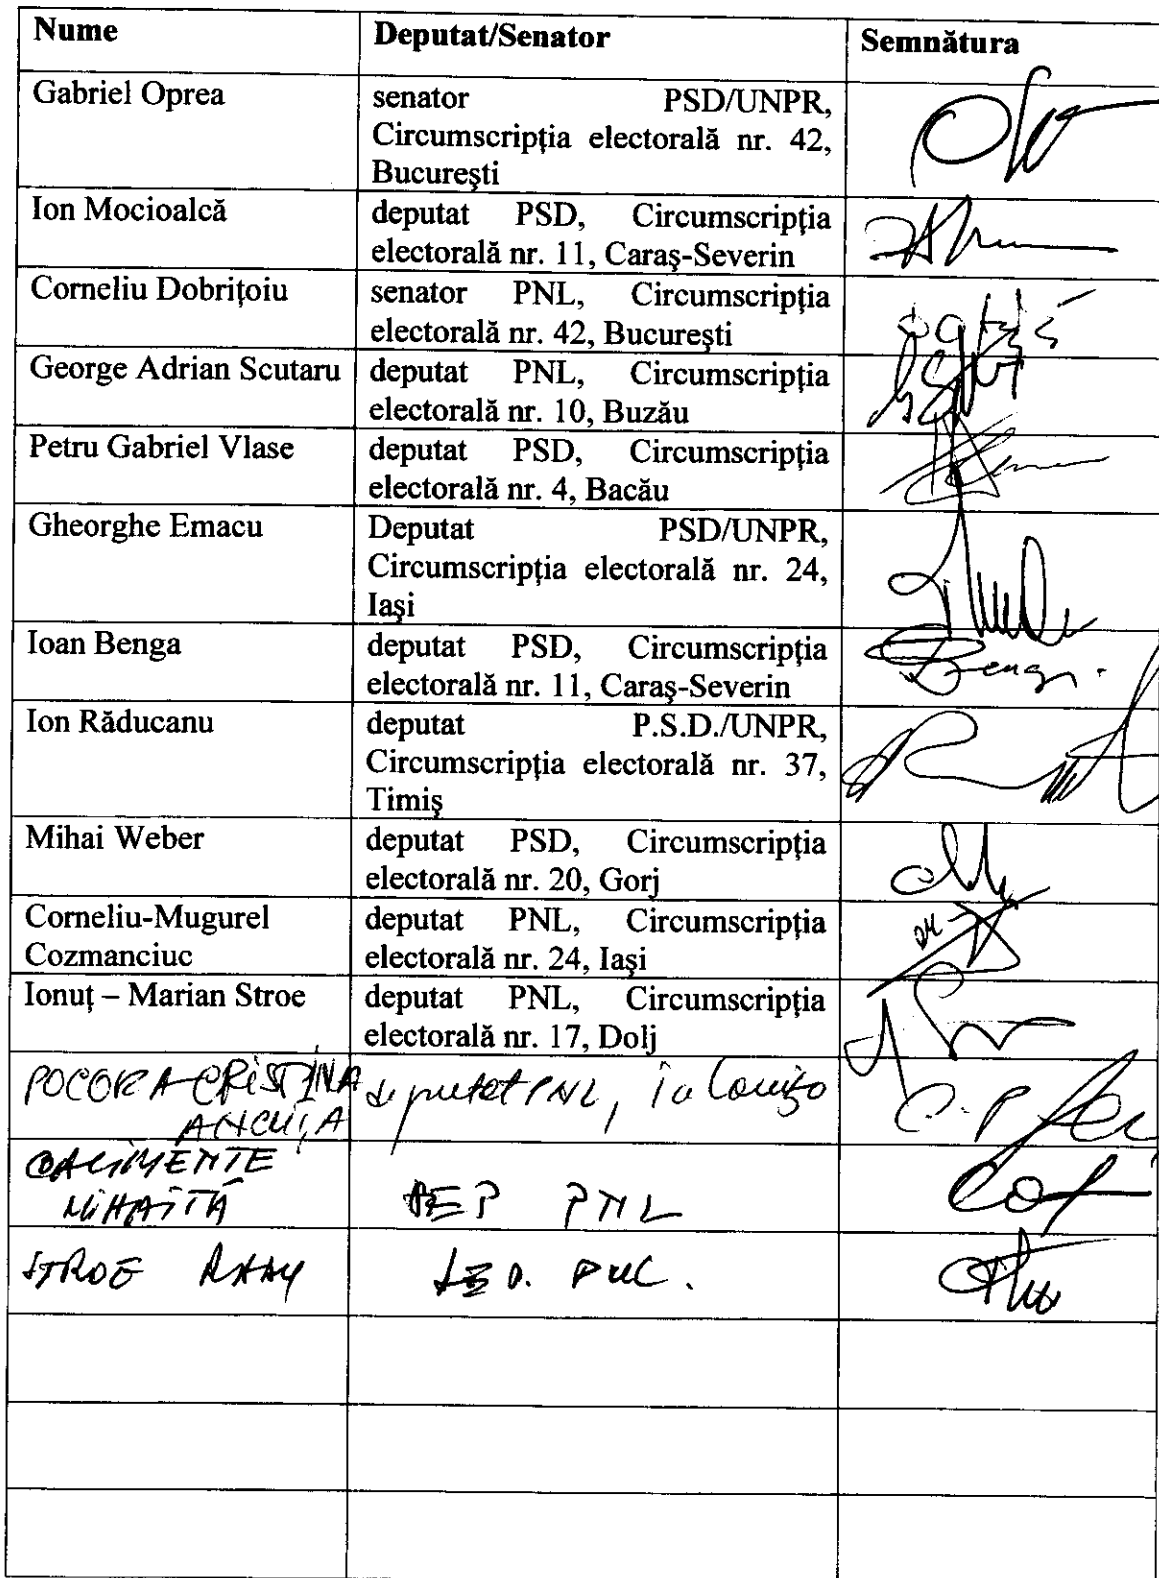 Nume Deputat/Senator Semnătura
Gabriel Oprea senator PSD/UNPR,
Circumscripţia electorală nr. 42,
Bucureşti
Ion Mocioalcă deputat PSD, Circumscripţia
electorală nr. 11, Caraş-Severin
Corneliu Dobriţoiu senator PNL, Circumscripţia
electorală nr. 42, Bucureşti
George Adrian Scutaru deputat PNL, Circumscripţia
electorală nr. 10, Buzău
Petru Gabriel Vlase deputat PSD, Circumscripţia
electorală nr. 4, Bacău
Gheorghe Emacu Deputat PSD/UNPR,
Circumscripţia electorală nr. 24,
Iaşi
Ioan Benga deputat PSD, Circumscripţia
electorală nr. 11, Caraş-Severin
Ion Răducanu deputat P.S.D./UNPR,
Circumscripţia electorală nr. 37,
Timiş
Mihai Weber deputat PSD, Circumscripţia
electorală nr. 20, Gorj
Corneliu-Mugurel deputat PNL, Circumscripţia
Cozmanciuc electorală nr. 24, Iaşi
Ionuţ – Marian Stroe deputat PNL, Circumscripţia
electorală nr. 17, Dolj
POCORA CRISTINA deputat PNL, Ialomița
ANCUȚA
CALIMENTE
MIHĂIȚĂ DEP PNL
STROE